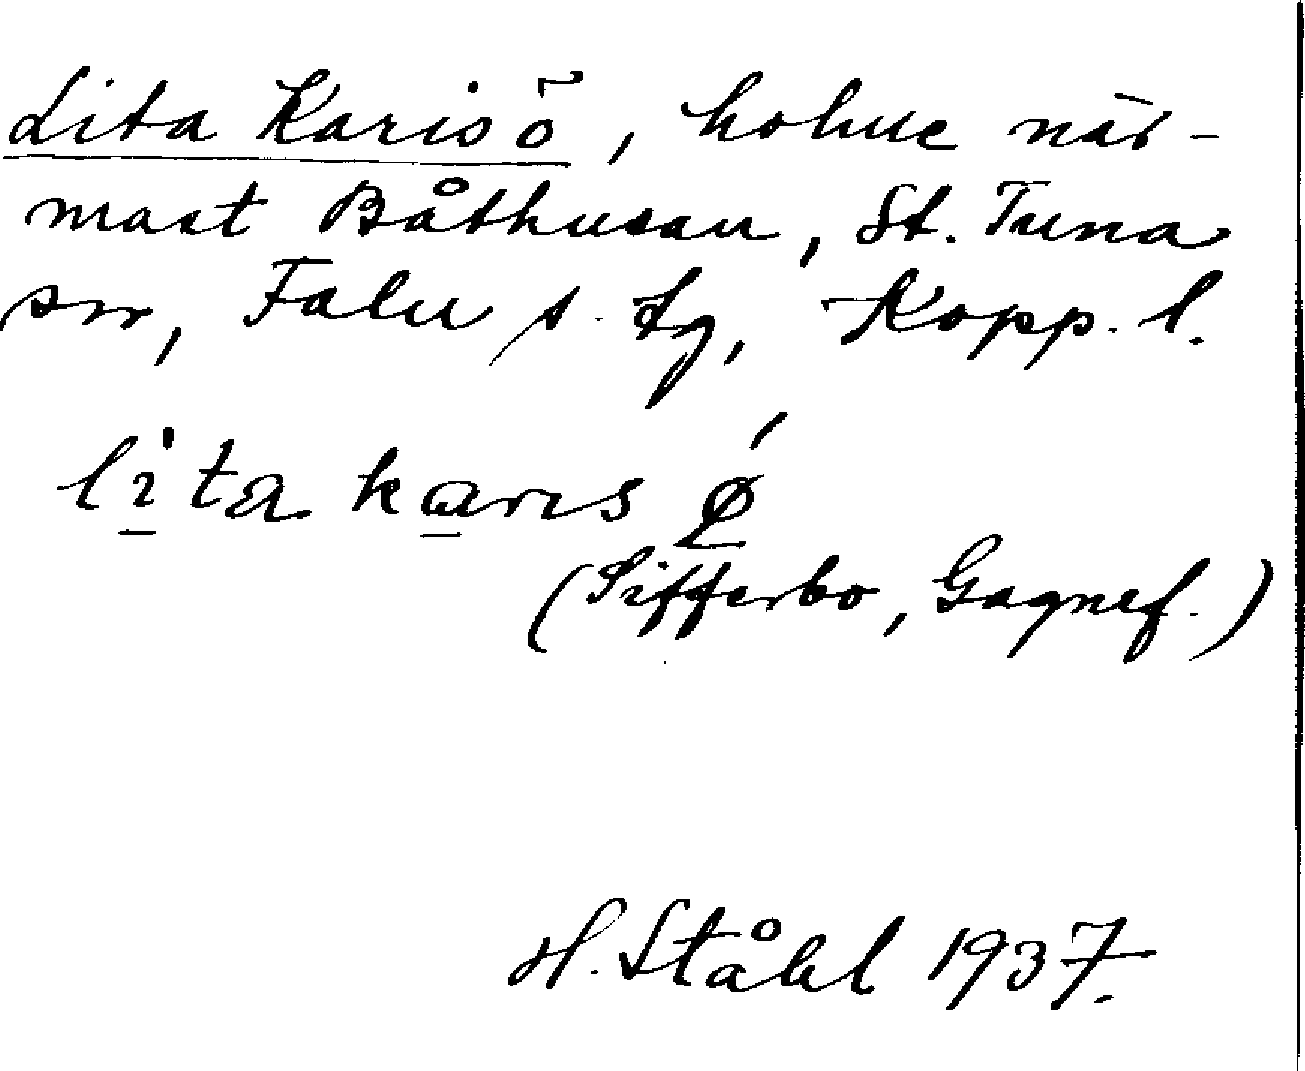 Lita Karisö, holme när-
mast Båthusan, St. Tuna
sn, Falu s. tg, Kopp. l.
lita karıs ø
(Sifferbo, Gagnef.)
H. Ståhl 1937.